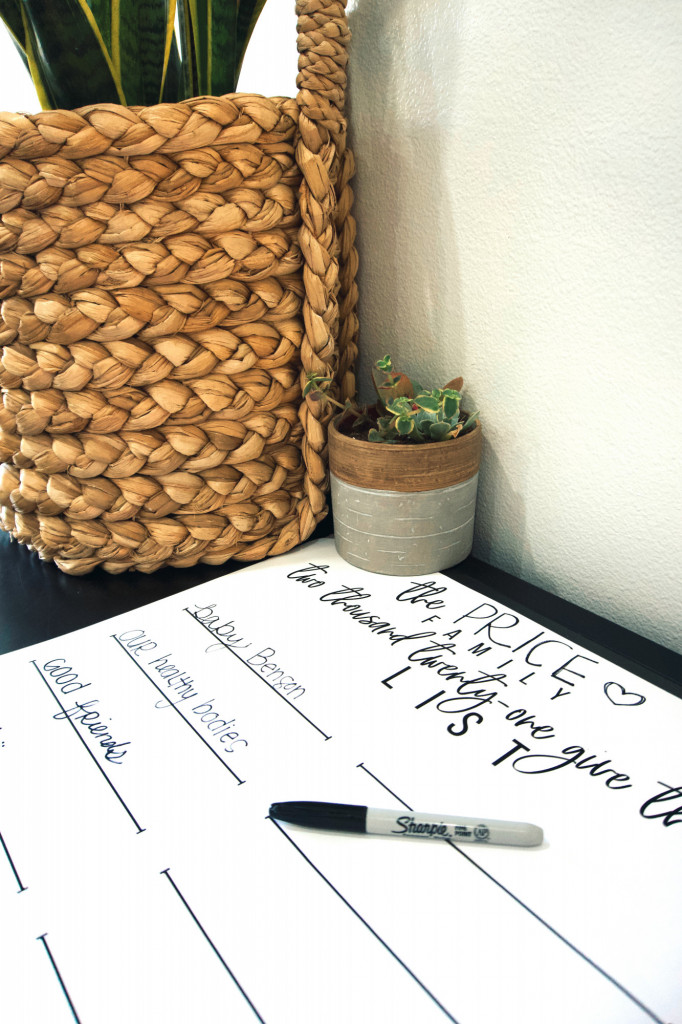 the PRICE
FAMILY
two thousand twenty-one give th
LIST
baby Benson
our healthy bodies
good friends
Sharpie